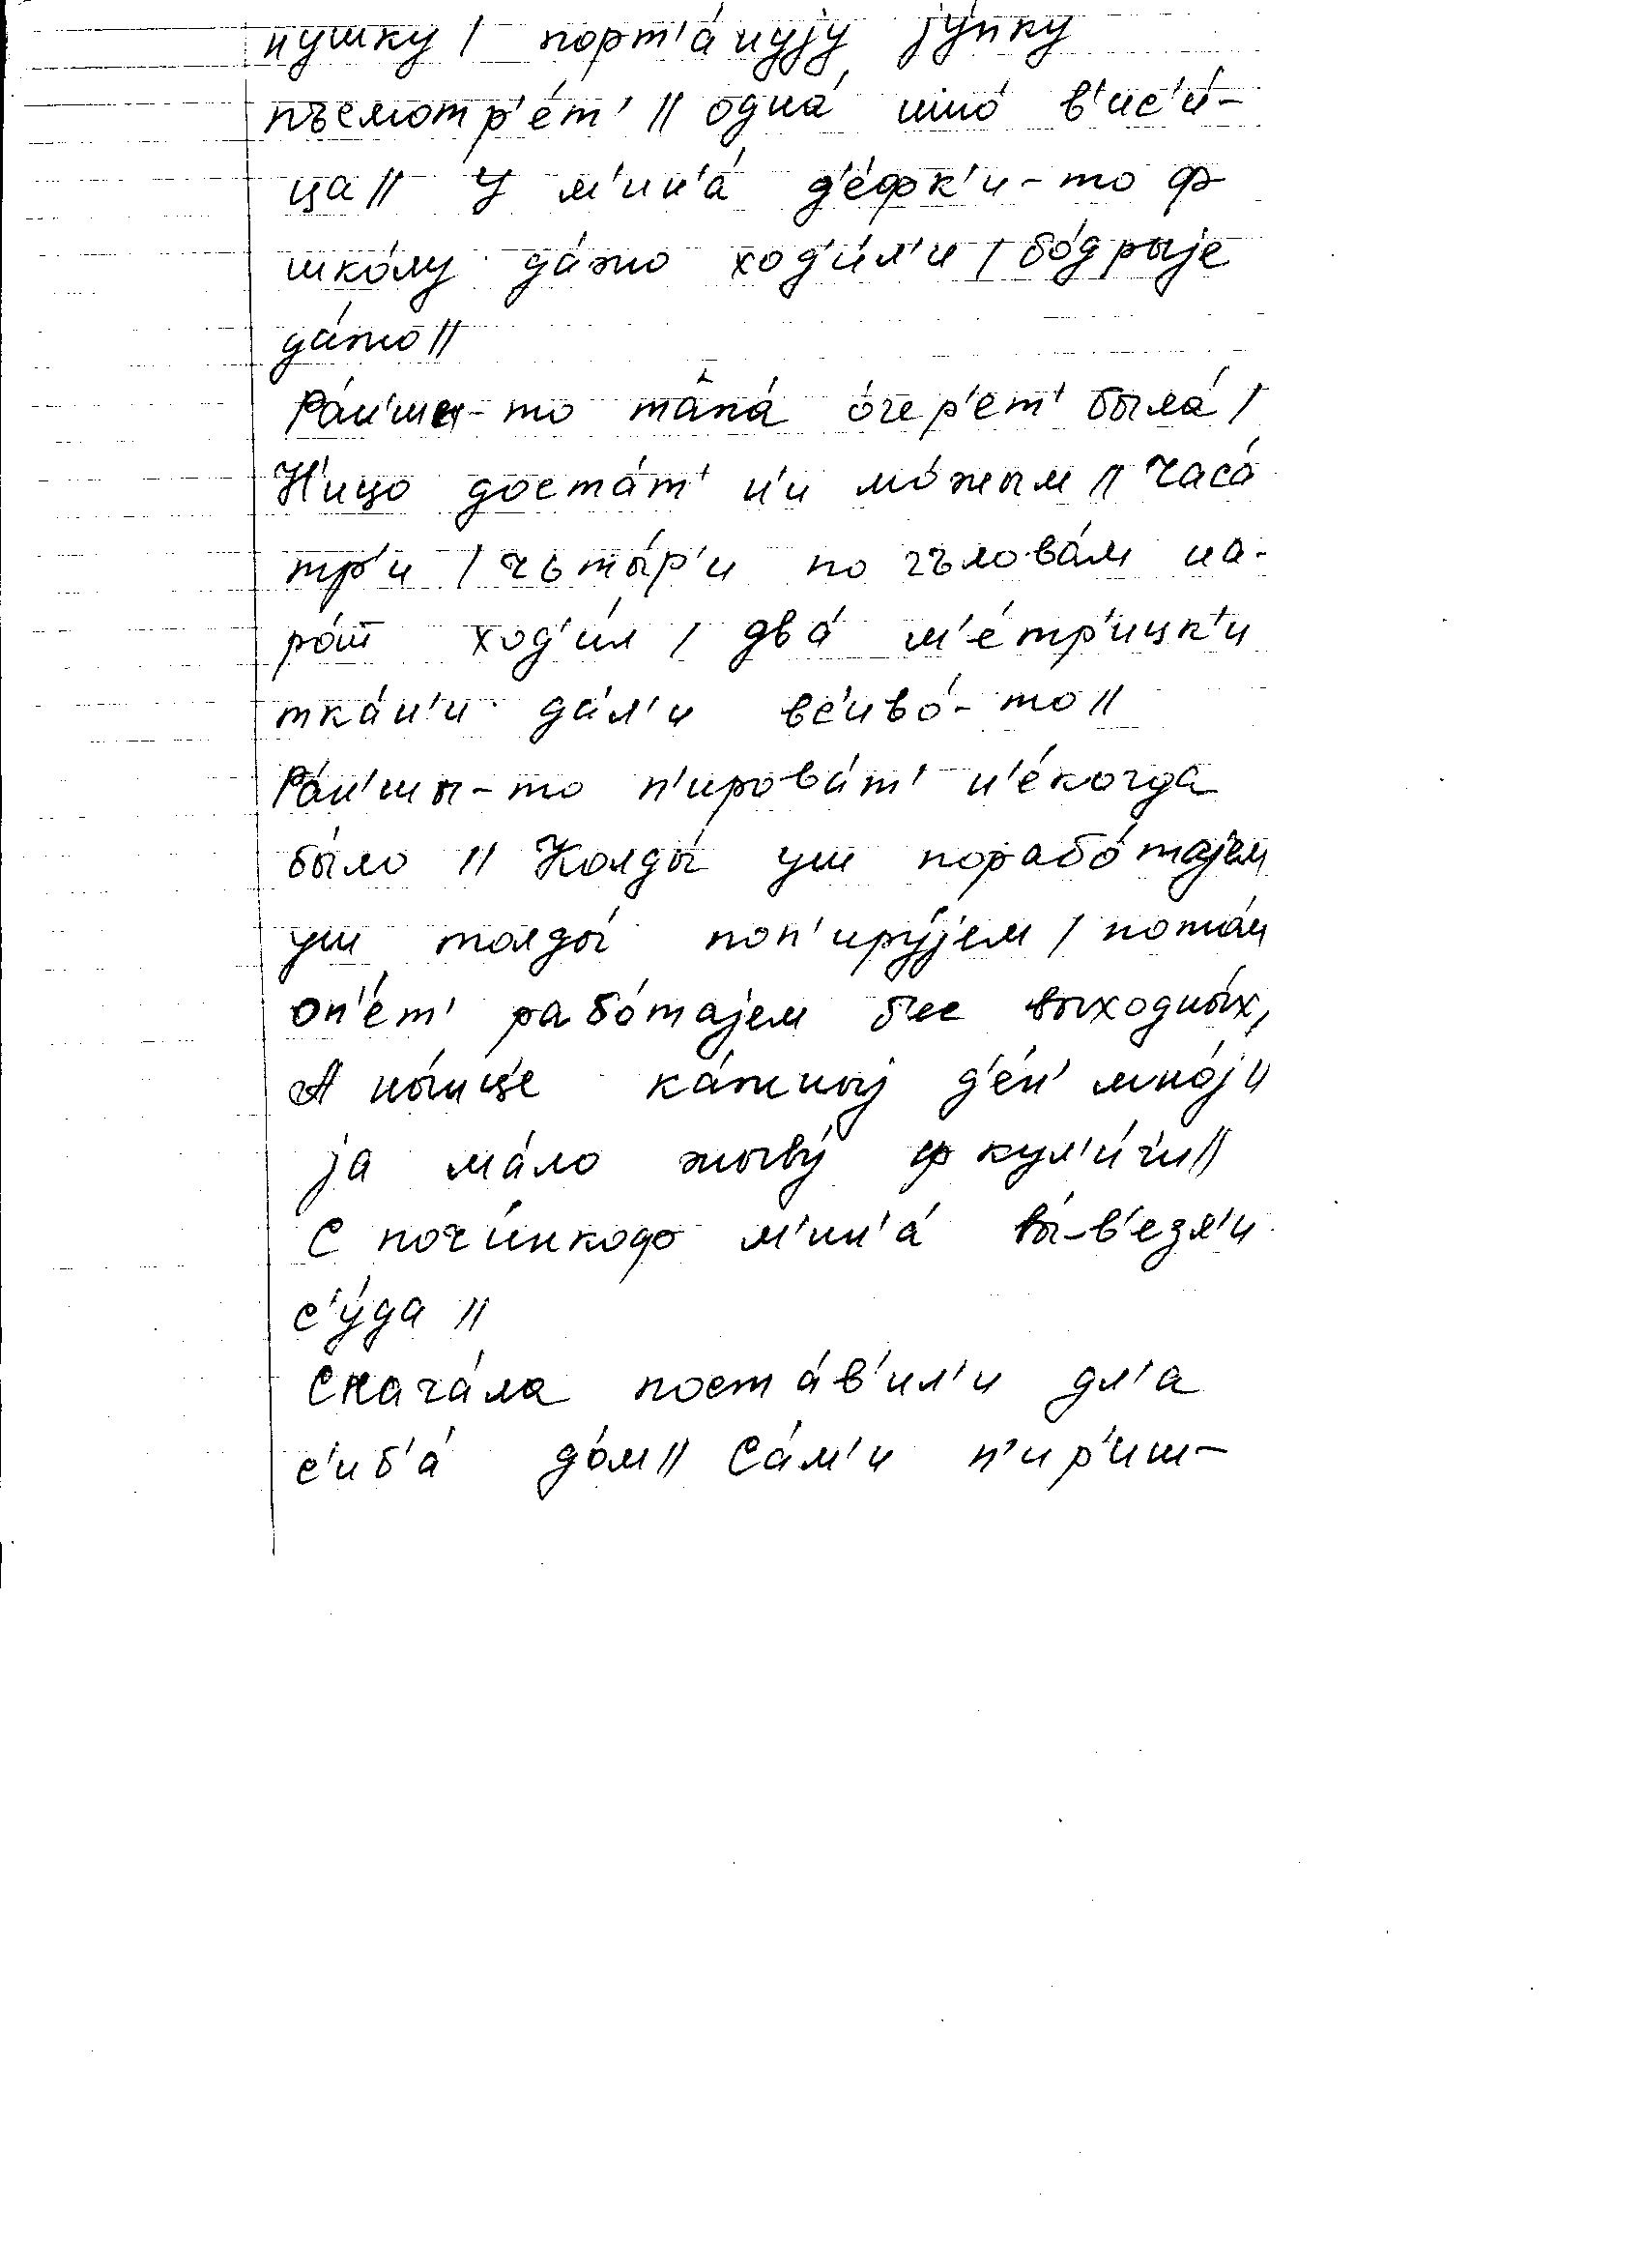 нушку / порт'а́нуjу jу́пку
пъсмотр'е́т' // одна́ ишшо́ в'ис'и́-
ца // У м'ин'а́ д'е́фк'и-то ф
шко́лу да́жо ход'и́л'и / бо́дрыjе
да́жо //
Ра́н'шы-то така́ о́чер'ет' была́ /
Н'ицо доста́т' н'и мо́жым // Часа́
тр'и / чьты́р'и по гълова́м на-
ро́т ход'и́л / два́ м'е́тр'ицк'и
тка́н'и да́л'и вс'иво́-то //
Ра́н'шы-то п'ирова́т' н'е́когда
бы́ло // Колды́ уш порабо́таjем
уш толды́ поп'иру́jем / пото́м
оп'е́т' рабо́таjем б'ес выходны́х,
А ны́нц'е ка́жныj д'е́н' мно́jи
jа ма́ло жыву́ ф кул'и́г'и //
С поч'и́нкоф м'ин'а́ вы́-в'езл'и
с'у́да //
Снача́ла поста́в'ил'и дл'а
с'иб'а́ до́м // Са́м'и п'ир'иш-